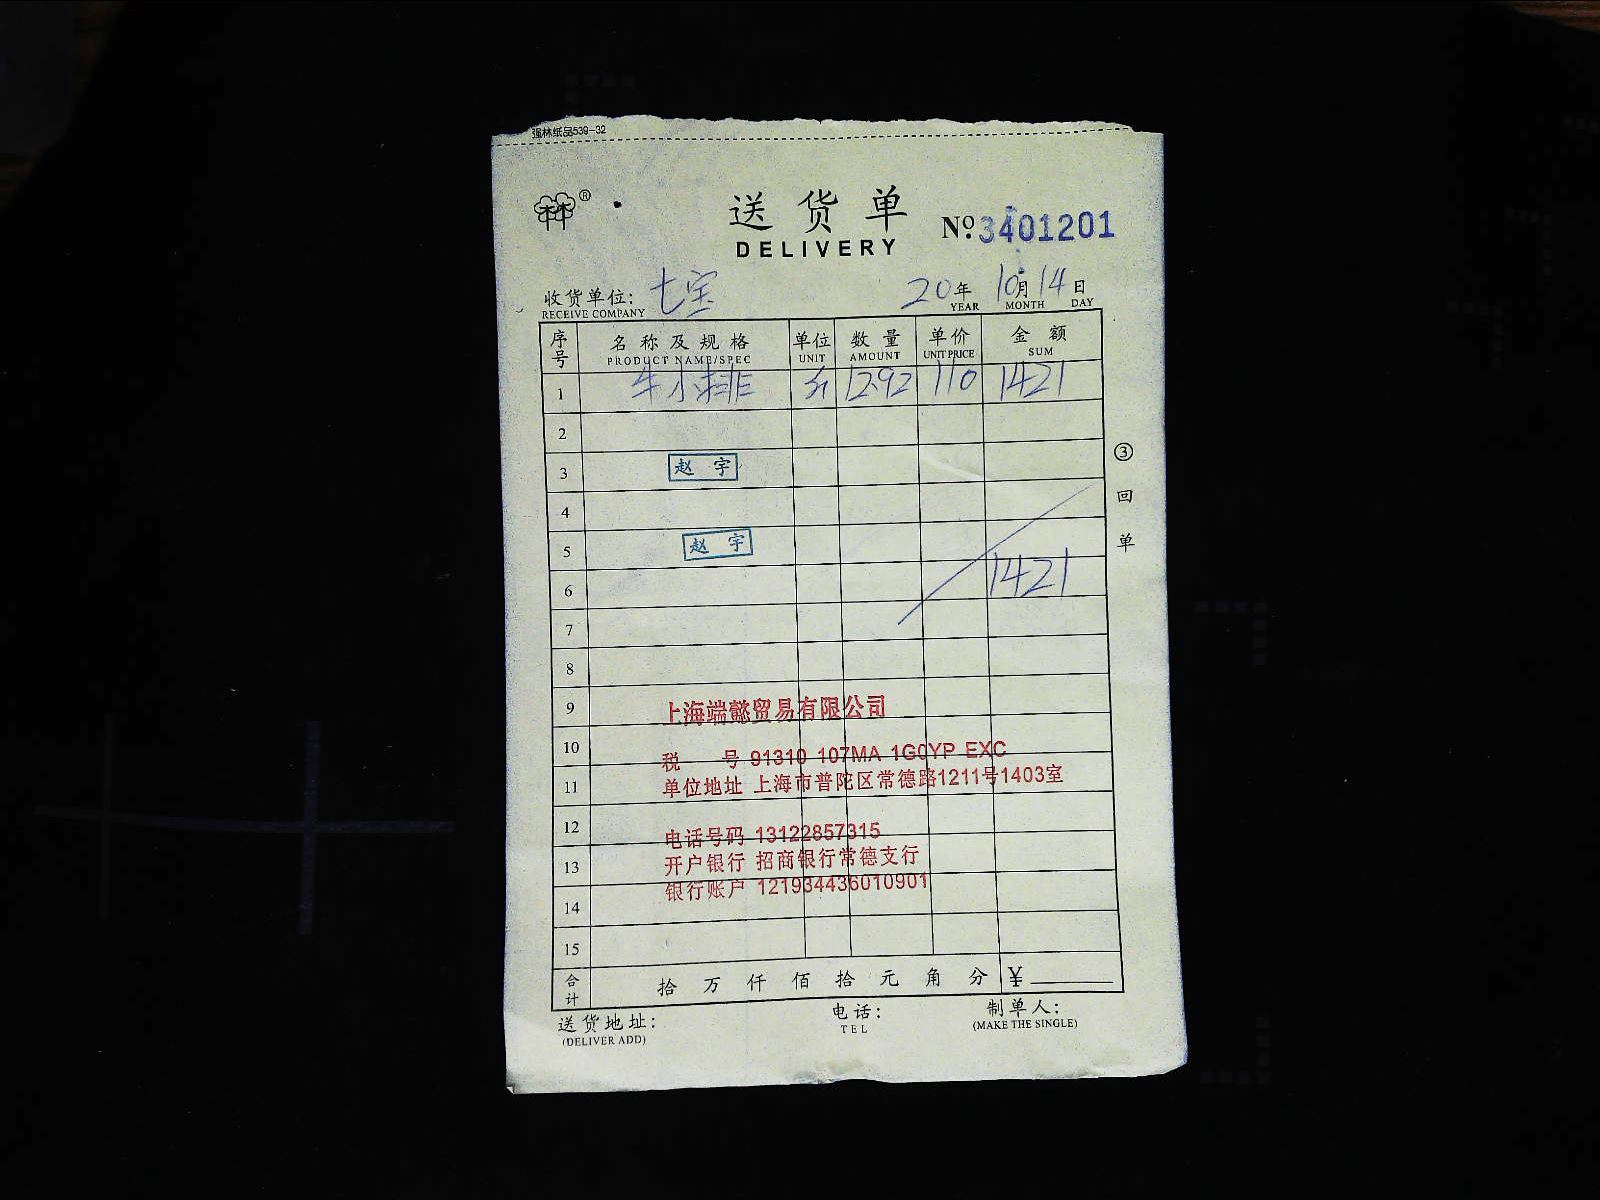 强林纸品539-32
林®
送货单
DELIVERY
№3401201
收货单位: 七宝 20年 10月 14日
RECEIVE COMPANY YEAR MONTH DAY
序号 名称及规格 单位 数量 单价 金额
PRODUCT NAME/SPEC UNIT AMOUNT UNIT PRICE SUM
1 牛小排 斤 12.92 110 1421
2
3 赵宇
4
5 赵宇
6 1421
7
8
9 上海端懿贸易有限公司
10 税号 91310 107MA 1G0YP EXC
11 单位地址 上海市普陀区常德路1211号1403室
12 电话号码 13122857315
13 开户银行 招商银行常德支行
14 银行账户 121934436010901
15
合计 拾万仟佰拾元角分 ¥
③回单
送货地址: 电话: 制单人:
(DELIVER ADD) TEL (MAKE THE SINGLE)